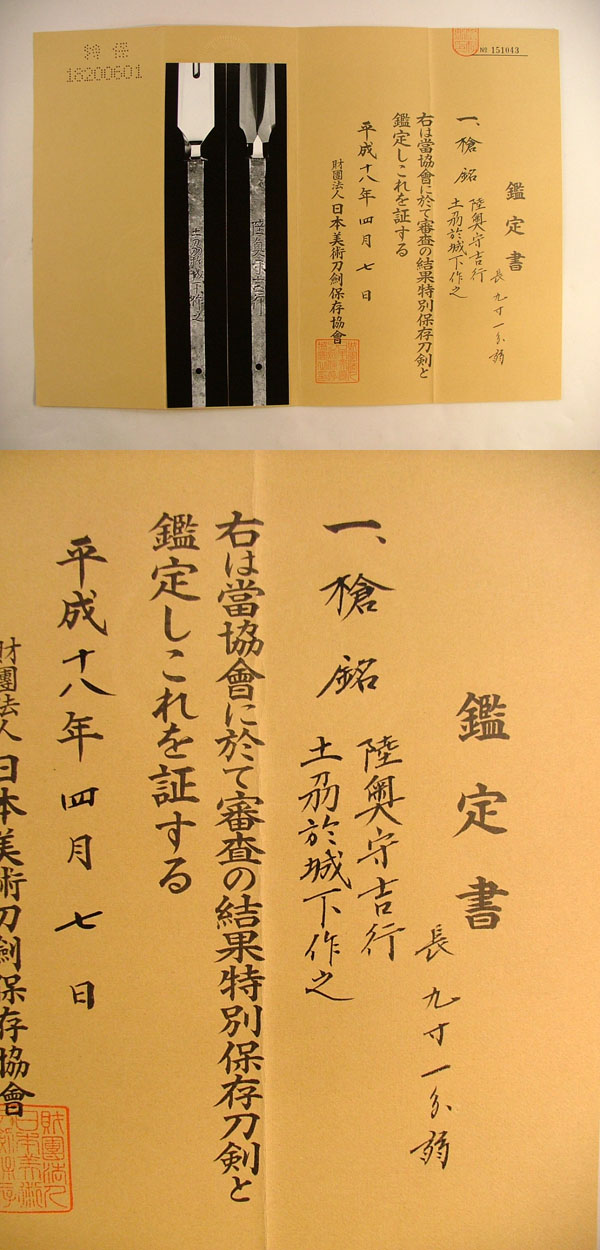 特保
18200601
№ 151043
鑑定書
長九寸一分弱
一、槍 銘 陸奥守吉行
土刕於城下作之
右は當協會に於て審査の結果特別保存刀剣と
鑑定しこれを証する
平成十八年四月七日
財團法人日本美術刀剣保存協會
陸奥守吉行
土刕於城下作之
鑑定書
長九寸一分弱
一、槍 銘 陸奥守吉行
土刕於城下作之
右は當協會に於て審査の結果特別保存刀剣と
鑑定しこれを証する
平成十八年四月七日
財團法人日本美術刀剣保存協會